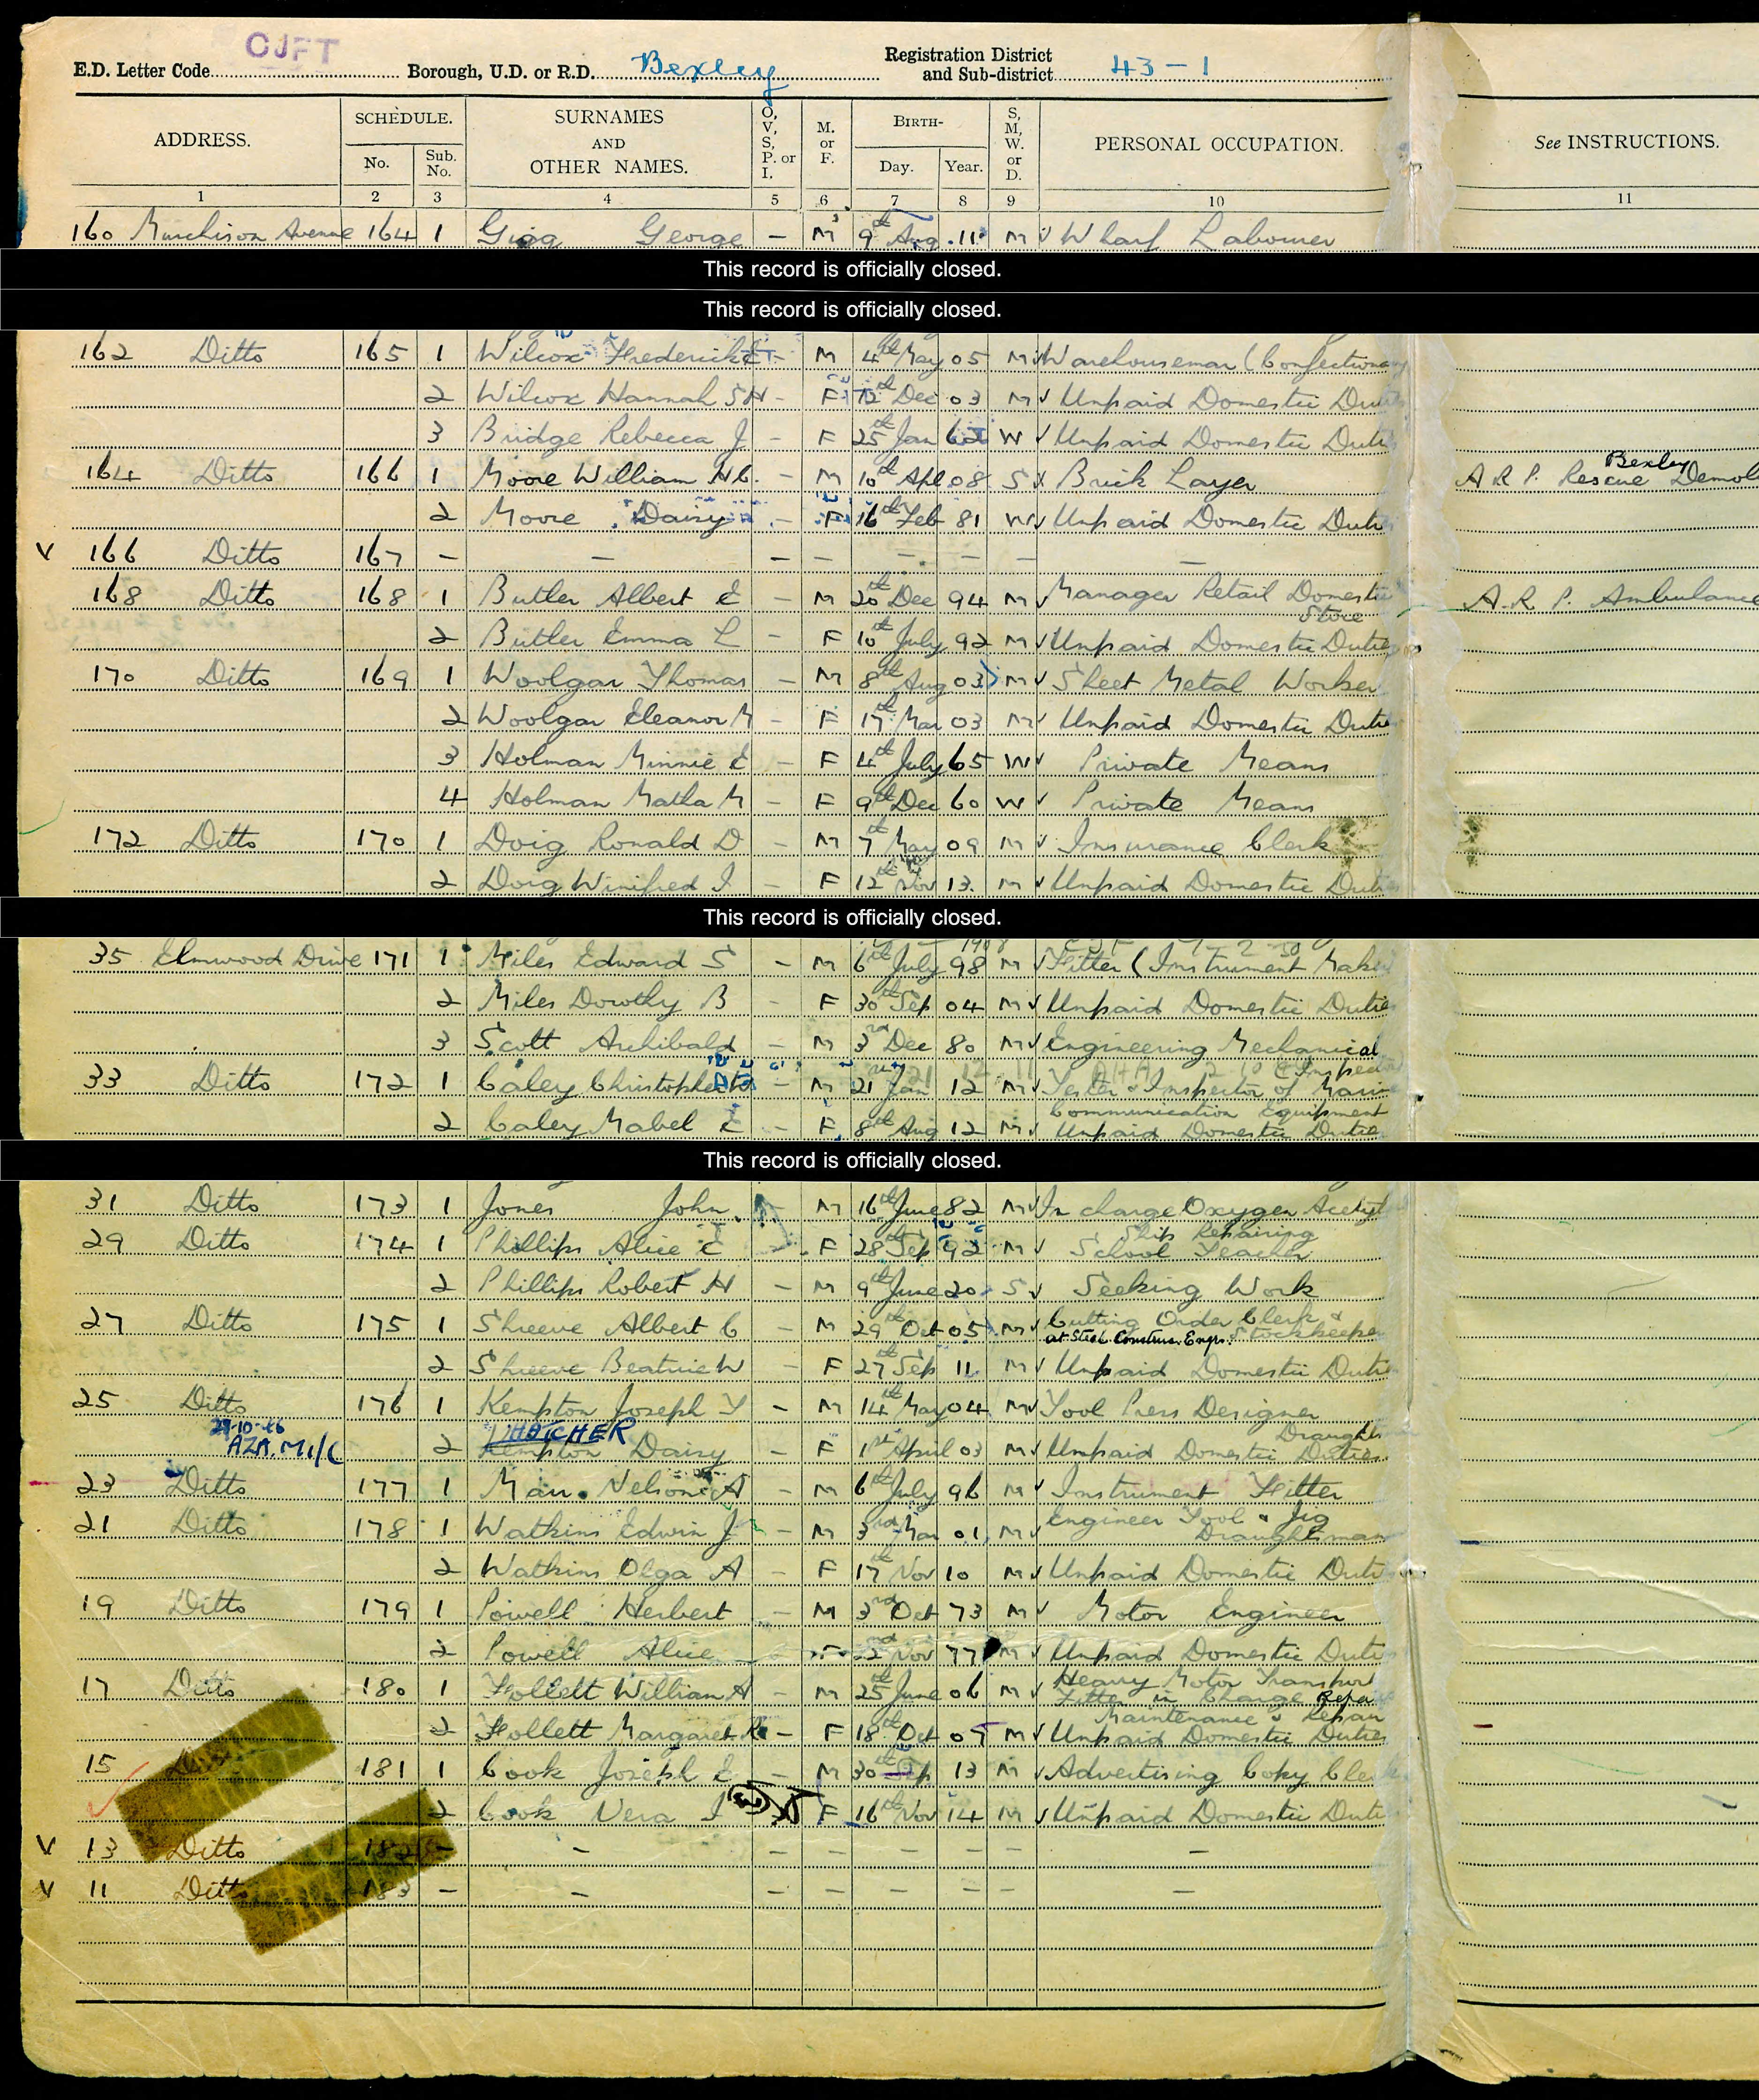 E.D. Letter Code CJFT Borough, U.D. or R.D. Bexley Registration District and Sub-district 43-1
ADDRESS. SCHEDULE. SURNAMES AND OTHER NAMES. O, V, S, P. or I. M. or F. BIRTH- S, M, W. or D. PERSONAL OCCUPATION. See INSTRUCTIONS.
No. Sub. No. Day. Year.
1 2 3 4 5 6 7 8 9 10 11
160 Murchison Avenue 164 1 Gigg George - M 9th Aug 11 M Wharf Labourer
This record is officially closed.
This record is officially closed.
162 Ditto 165 1 Wilcox Frederick - M 4th May 05 M Warehouseman (Confectionary
2 Wilcox Hannah S H - F 12th Dec 03 M Unpaid Domestic Duties
3 Bridge Rebecca J - F 25th Jan 62 W Unpaid Domestic Duties
164 Ditto 166 1 Moore William H C. - M 10th Apl 08 S Brick Layer A R P. Rescue Bexley Demol
2 Moore Daisy - F 16th Feb 81 W Unpaid Domestic Duties
V 166 Ditto 167 - - - - - - - -
168 Ditto 168 1 Butler Albert E - M 20th Dec 94 M Manager Retail Domestic Store A.R.P. Ambulance
2 Butler Emma L - F 10th July 92 M Unpaid Domestic Duties
170 Ditto 169 1 Woolgar Thomas - M 8th Aug 03 M Sheet Metal Worker
2 Woolgar Eleanor M - F 17th Mar 03 M Unpaid Domestic Duties
3 Holman Minnie E - F 4th July 65 W Private Means
4 Holman Matha M - F 9th Dec 60 W Private Means
172 Ditto 170 1 Doig Ronald D - M 7th May 09 M Insurance Clerk
2 Doig Winifred I - F 12th Nov 13 M Unpaid Domestic Duties
This record is officially closed.
35 Elmwood Drive 171 1 Miles Edward S - M 6th July 98 M Fitter (Instrument Maker
2 Miles Dorothy B - F 30th Sep 04 M Unpaid Domestic Duties
3 Scott Archibald - M 3rd Dec 80 M Engineering Mechanical
33 Ditto 172 1 Caley Christopher - M 21 Jan 12 M Tester & Inspector of Marine
Communication Equipment
2 Caley Mabel E - F 8th Aug 12 M Unpaid Domestic Duties
This record is officially closed.
31 Ditto 173 1 Jones John - M 16th June 82 M In charge Oxygen Acetyl
Ship Repairing
29 Ditto 174 1 Phillips Alice E - F 28th Sep 92 M School Teacher
2 Phillips Robert H - M 9th June 20 S Seeking Work
27 Ditto 175 1 Shreeve Albert C - M 29th Oct 05 M Cutting Order Clerk &
at Steel Construc. Engrs. Stockkeeper
2 Shreeve Beatrice W - F 27th Sep 11 M Unpaid Domestic Duties
25 Ditto 176 1 Kempton Joseph T - M 14th May 04 M Tool Press Designer
Draughts
THATCHER
2 Kempton Daisy - F 1st April 03 M Unpaid Domestic Duties
23 Ditto 177 1 Marr Nelson A - M 6th July 96 M Instrument Fitter
21 Ditto 178 1 Watkins Edwin J - M 3rd Mar 01 M Engineer Tool & Jig
Draughtsman
2 Watkins Olga A - F 17th Nov 10 M Unpaid Domestic Duties
19 Ditto 179 1 Powell Herbert - M 3rd Oct 73 M Motor Engineer
2 Powell Alice - F 2nd Nov 77 M Unpaid Domestic Duties
17 Ditto 180 1 Follett William A - M 25th June 06 M Heavy Motor Transport
Fitter in Charge Repair
Maintenance & Repair
2 Follett Margaret R - F 18th Oct 05 M Unpaid Domestic Duties
15 Ditto 181 1 Cook Joseph E - M 30th Sep 13 M Advertising Copy Clerk
2 Cook Vera I F 16th Nov 14 M Unpaid Domestic Duties
V 13 Ditto 182 - - - - - - - -
V 11 Ditto 183 - - - - - - - -